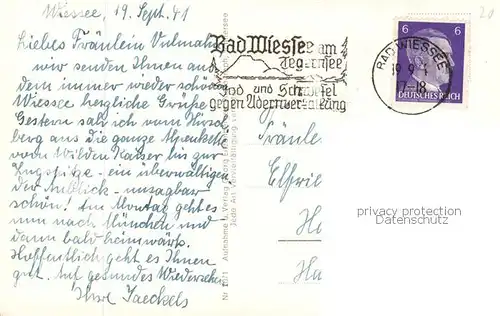 Wiessee, 19. Sept. 41
Liebes Fräulein Vulmahn
wir senden Ihnen aus
dem immer wieder schönen
Wiessee herzliche Grüße.
Gestern sah ich vom Hirsch
berg aus die ganze Alpenkette
vom Wilden Kaiser bis zur
Zugspitze - ein überwältigen
der Anblick - unsagbar
schön! Am Montag geht es
nun nach München und
dann bald heimwärts.
Hoffentlich geht es Ihnen
gut. Auf gesundes Wiedersehen
Ihre Jaeckels
Bad Wiessee am
Tegernsee
Jod und Schwefel
gegen Adernverkalkung
BAD WIESSEE
19.9.
17-18
6 6
DEUTSCHES REICH
20
Fräule
Elfrie
Ha
Ha
privacy protection
Datenschutz